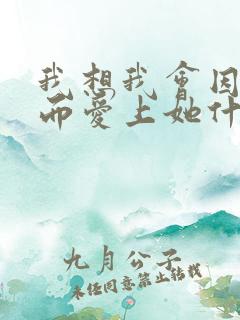 我想我会因
而爱上她什
九月公子
未经同意禁止转载